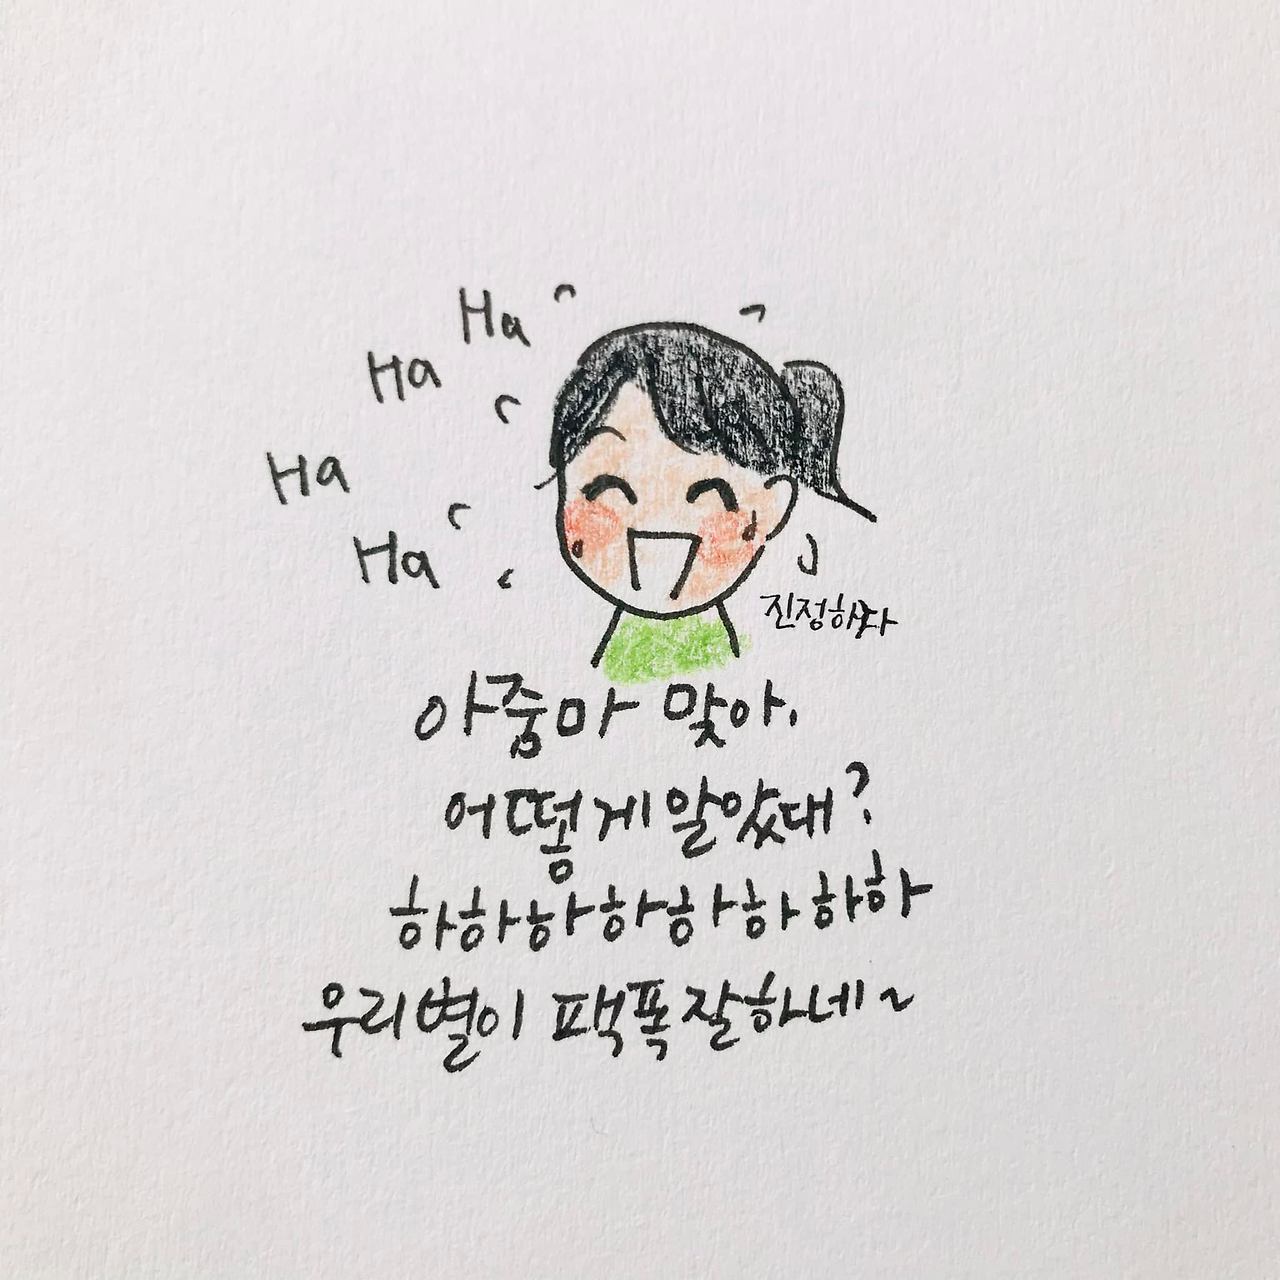 Ha
Ha
Ha
Ha
진정하자
아줌마 맞아.
어떻게 알았대?
하하하하하하하하
우리별이 팩폭잘하네~